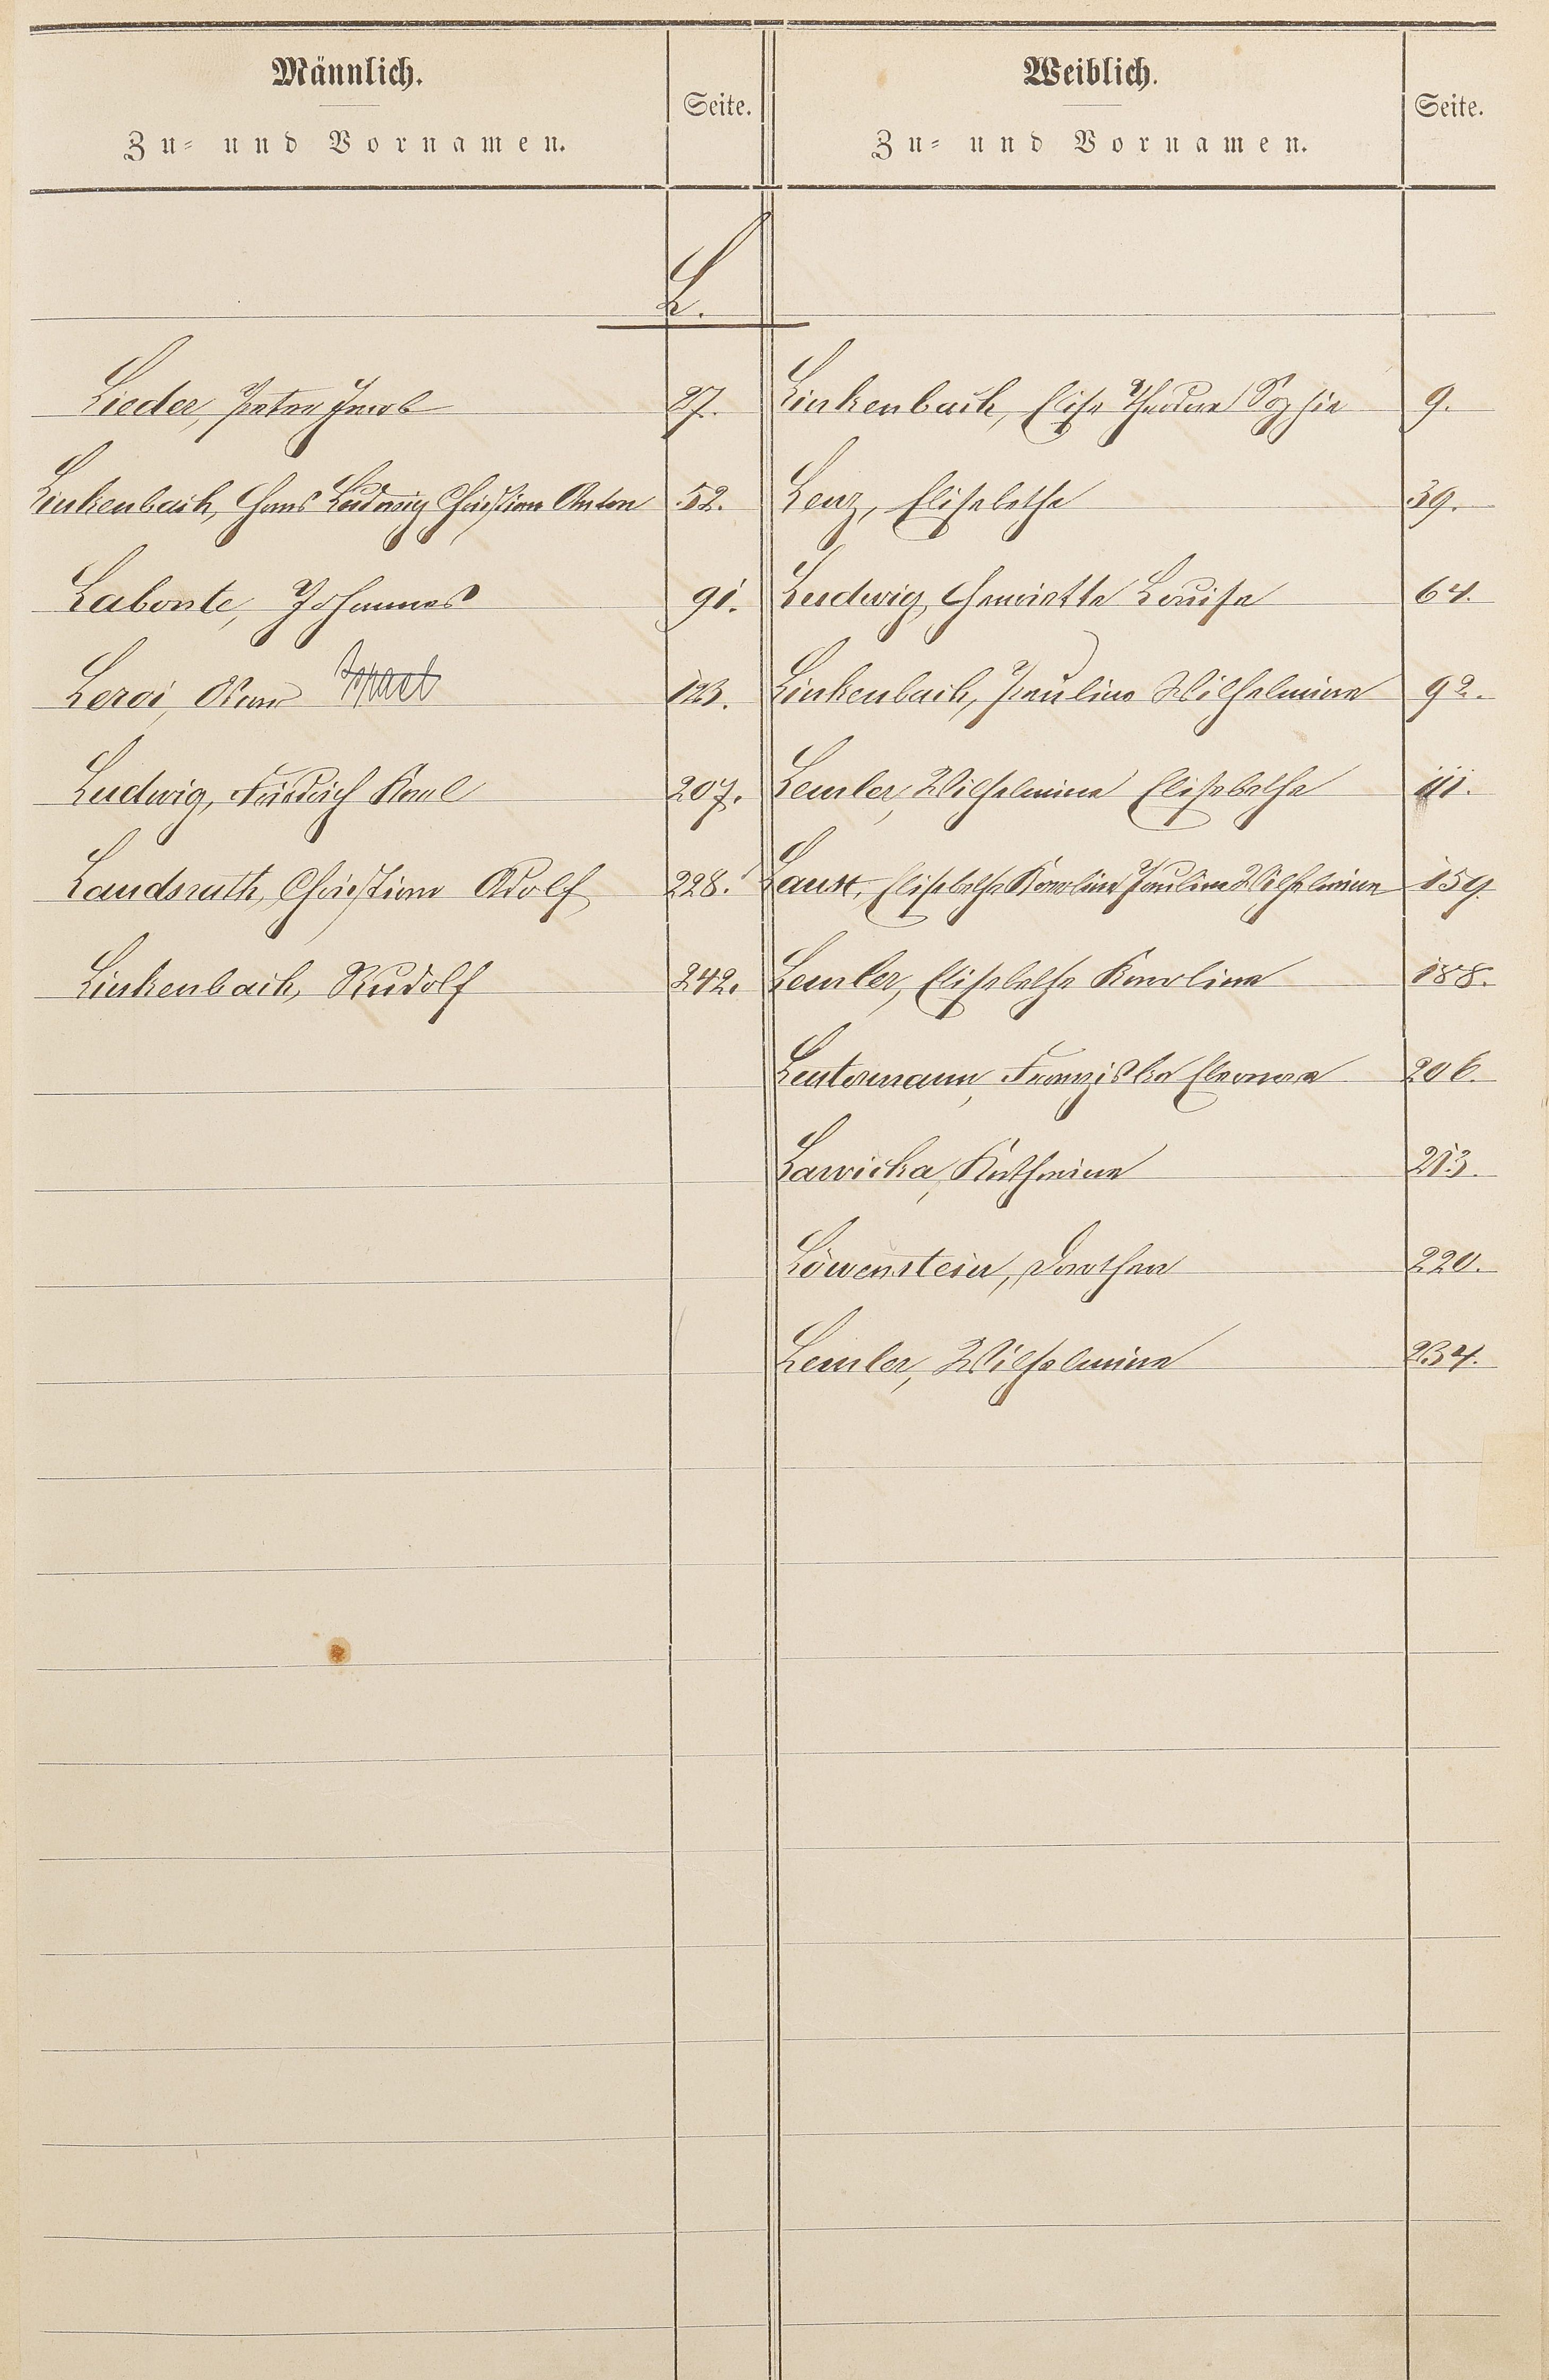 Männlich.
Zu- und Vornamen.
Seite.
Weiblich.
Zu- und Vornamen.
Seite.
L.
Lieder, Peter Jacob 27.
Linkenbach, Hans Ludwig Christian Anton 52.
Labonte, Johannes 91.
Leroi, Israel 123.
Ludwig, Friedrich Karl 207.
Landsrath, Christian Adolf 228.
Linkenbach, Rudolf 242.
Linkenbach, Elise Sophie 9.
Lenz, Elisabethe 39.
Ludwig, Henriette Louise 64.
Linkenbach, Pauline Wilhelmine 92.
Lemler, Wilhelmine Elisabethe 111.
Laux, Elisabethe Karoline Pauline Wilhelmine 159.
Lemler, Elisabethe Karoline 188.
Leutermann, Franziska Eleonore 206.
Lawicka, Katharina 213.
Löwenstein, Dorothea 220.
Lemler, Wilhelmine 234.